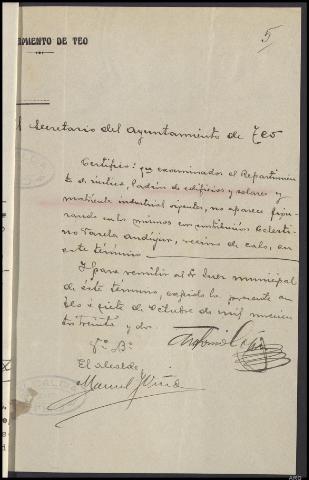 AMIENTO DE TEO
5
El Secretario del Ayuntamiento de Teo
Certifico: que examinados el Repartimien
to de rústica, padrón de edificios y solares y
matrícula industrial vigentes, no aparece figu-
rando en los mismos con Celesti-
no Varela Andújar, vecino de Calo, en
este término
Y para remitir al Sr Juez municipal
de este término, expido la presente en
Teo á siete de Octubre de mil novecien
tos treinta y dos
Vº Bº
El alcalde
Antonio
Manuel